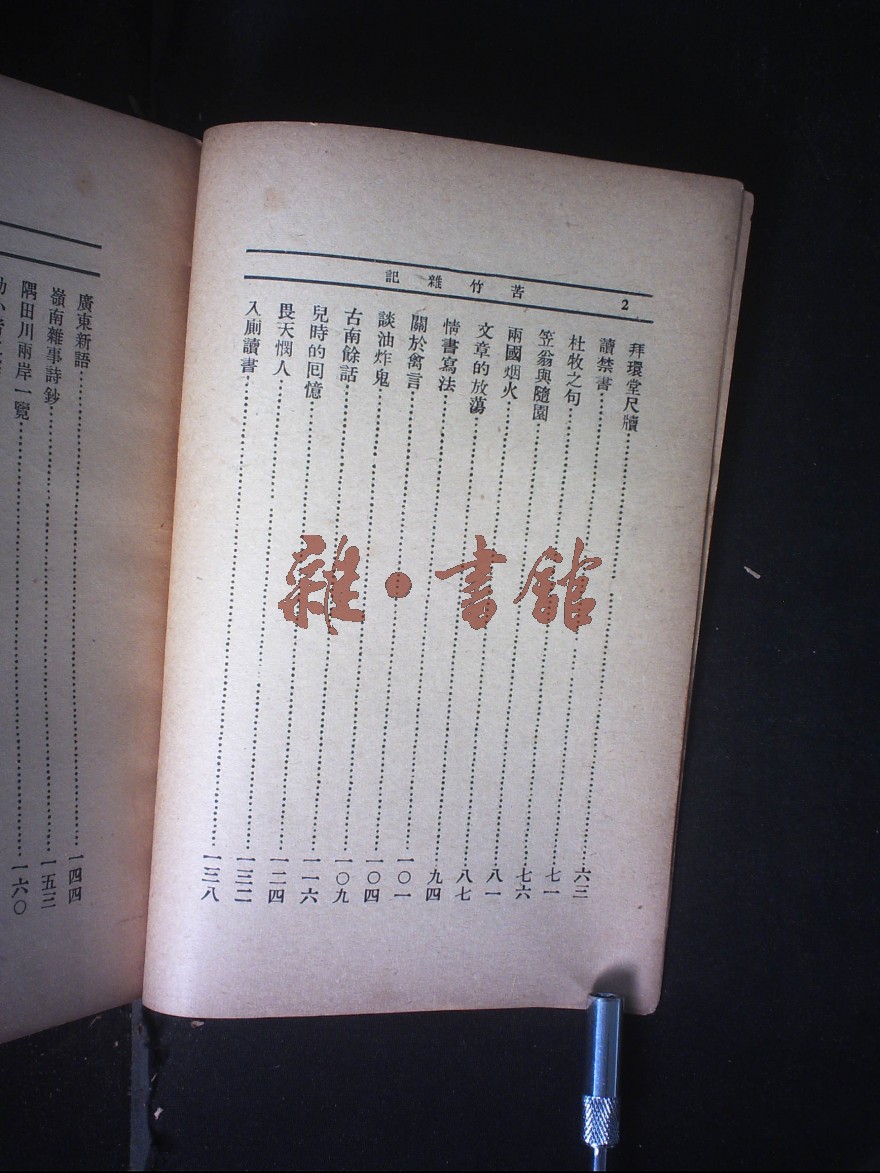 2 苦竹雜記
拜環堂尺牘……六三
讀禁書……七一
杜牧之句……七六
笠翁與隨園……八一
兩國烟火……八七
文章的放蕩……九四
情書寫法……一〇一
關於禽言……一〇四
談油炸鬼……一〇九
古南餘話……一一六
兒時的回憶……一二四
畏天憫人……一三二
入廁讀書……一三八
廣東新語……一四四
嶺南雜事詩鈔……一五三
隅田川兩岸一覽……一六〇
雜•書館